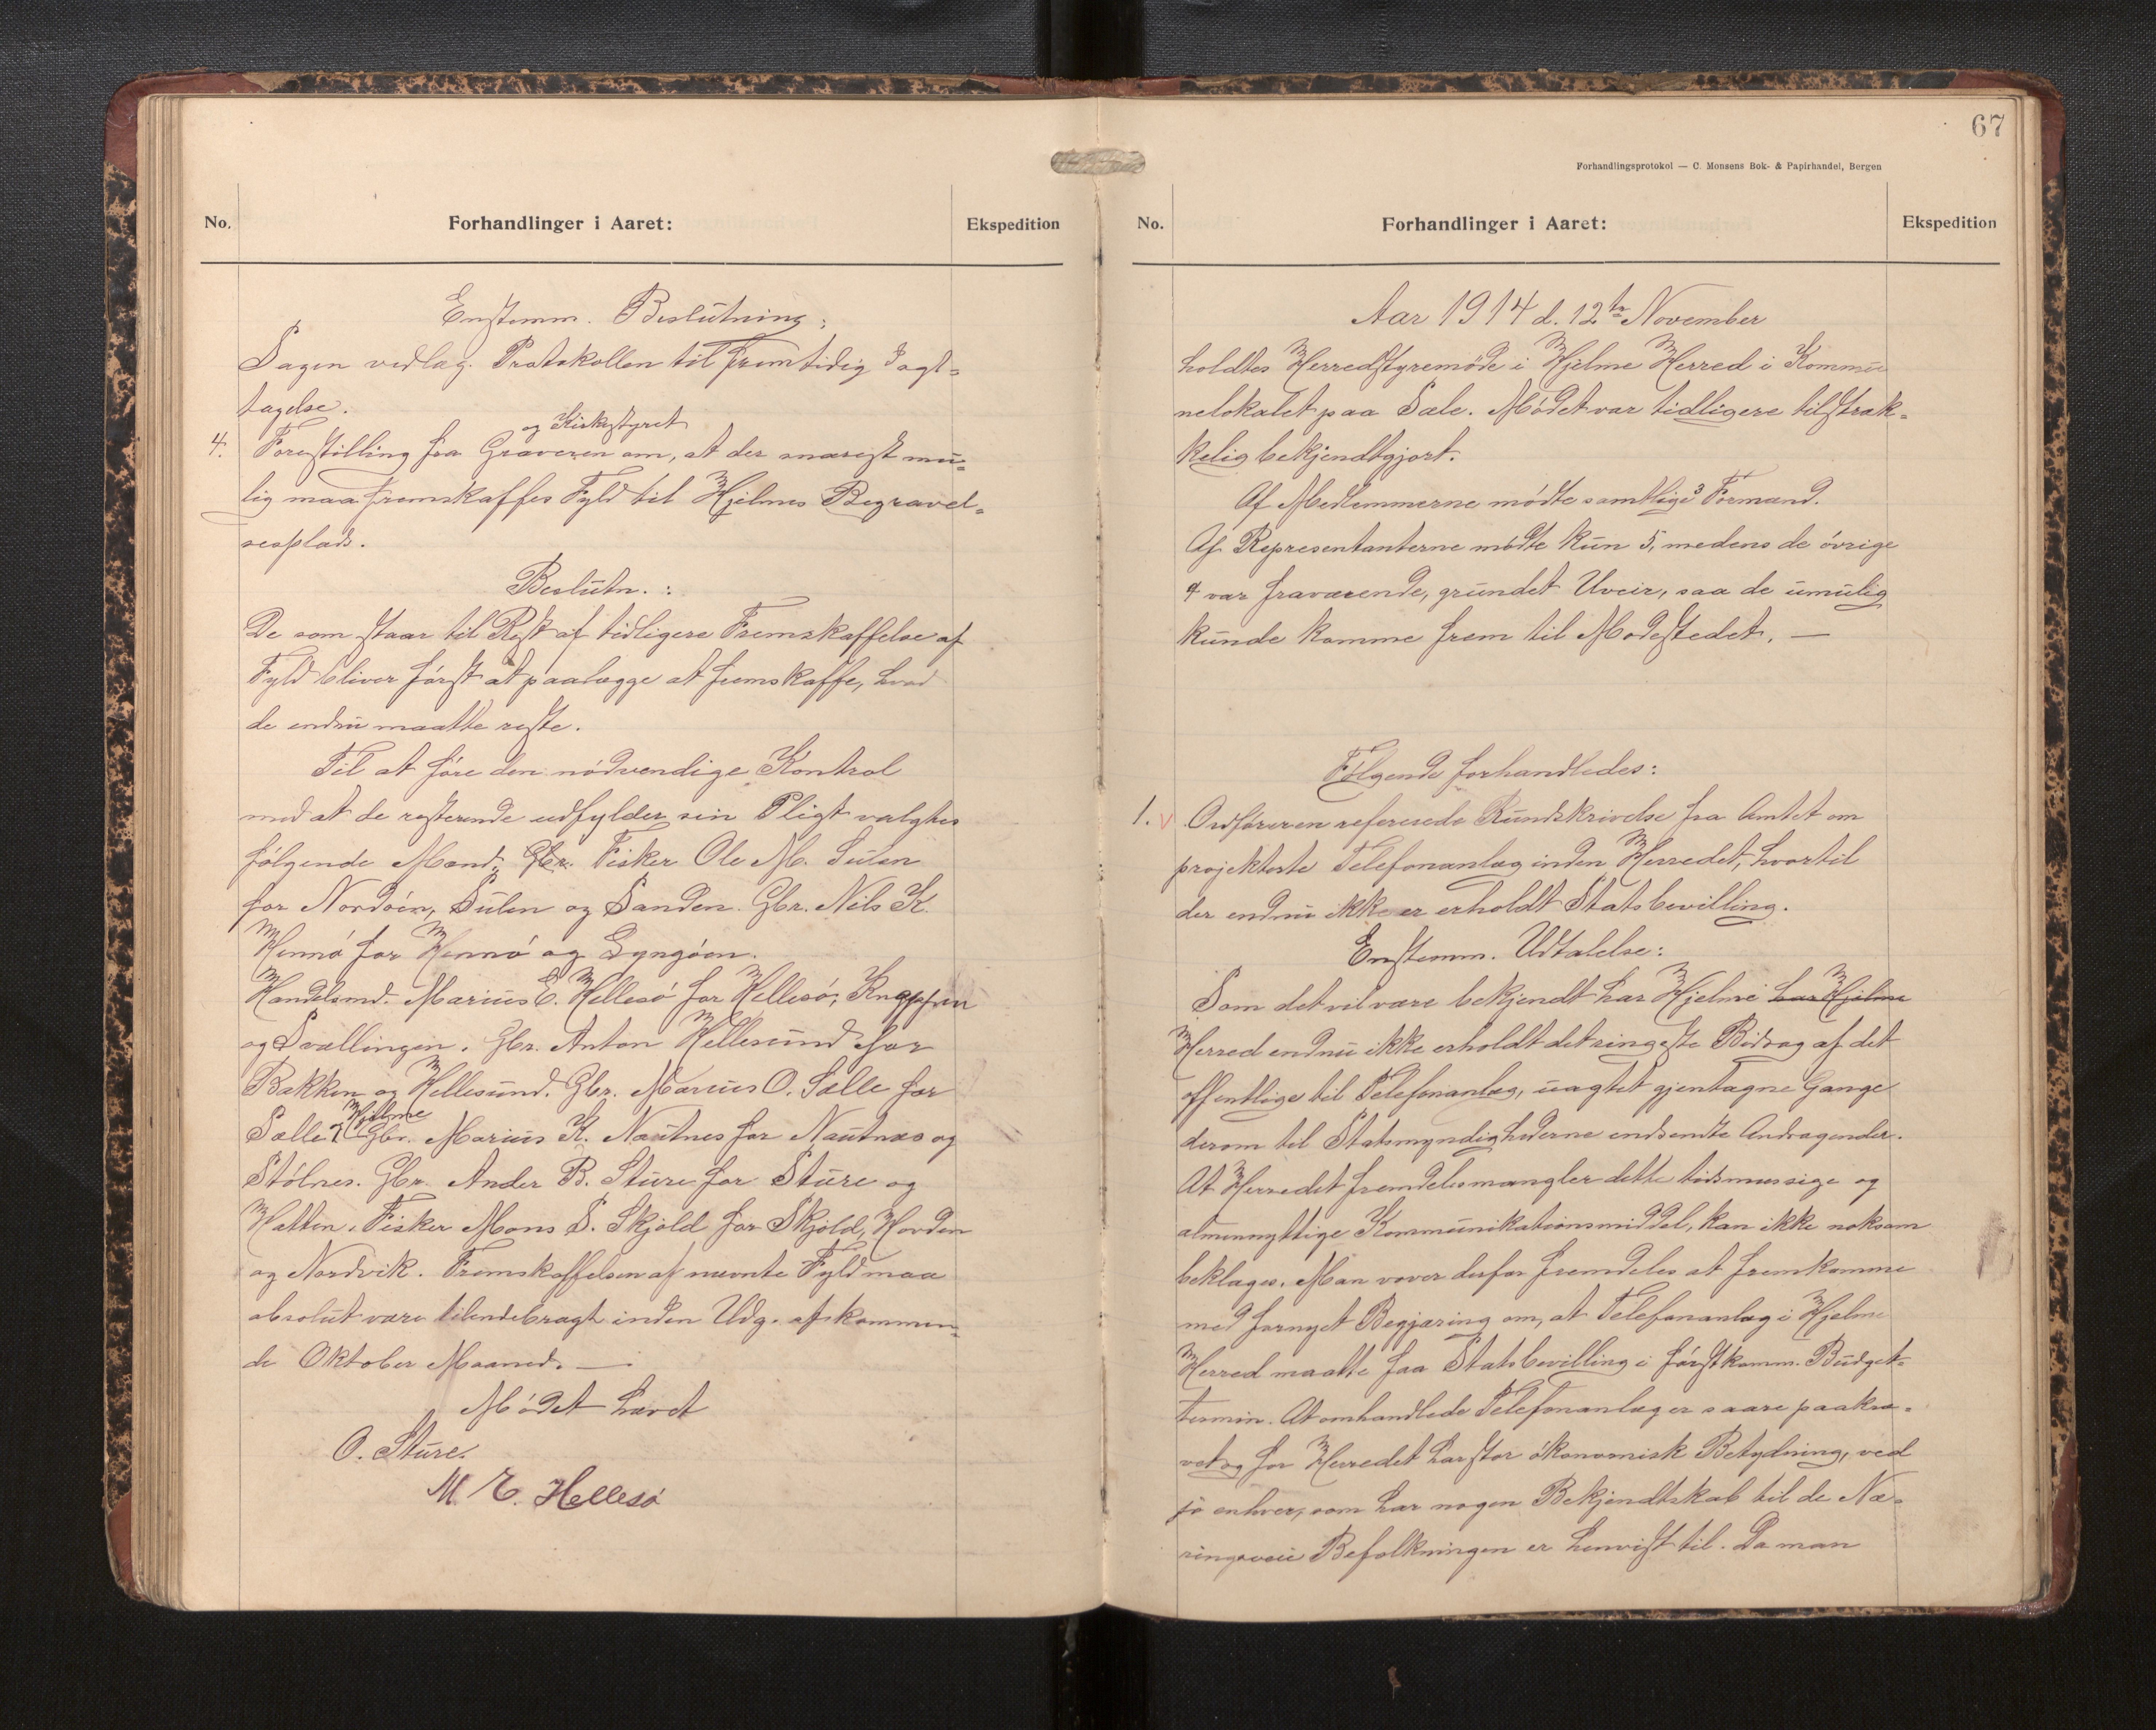 No.
Forhandlinger i Aaret:
Ekspedition
Enstemm. Beslutning:
Sagen vedlag. Protokollen til fremtidig Iagt-
tagelse.
og Kirkestyret
4. Forestilling fra Graveren om, at der snarest mu-
lig maa fremskaffes Fyld til Hjelmes Begravel-
sesplads.
Beslutn.:
De som staar til Rest af tidligere Fremskaffelse af
Fyld bliver først at paalægge at fremskaffe, hvad
de endnu maatte reste.
Til at føre den nødvendige Kontrol
med at de resterende udfylder sin Pligt valgtes
følgende Mænd: Gbr. Fisker Ole M. Sulen
for Nordøen, Sulen og Sanden. Gbr. Nils K.
Hennø for Hennø og Lyngøen.
Handelsmd. Marius E. Hellesø for Hellesø, Knappen
og Svællingen. Gbr. Anton Hellesund for
Bakken og Hellesund. Gbr. Marius O. Sælle for
Hjelme
Sælle & Gbr. Marius K. Nautnes for Nautnes og
Stølnes. Gbr. Ander B. Sture for Sture og
Hatten. Fisker Mons S. Skjold for Skjold, Horden
og Nordvik. Fremskaffelsen af nævnte Fyld maa
absolut være tilendebragt inden Udg. af kommen-
de Oktober Maaned. —
Mødet hævet
O. Sture.
M. E. Hellesø
67
Forhandlingsprotokol — C. Monsens Bok- & Papirhandel, Bergen
No.
Forhandlinger i Aaret:
Ekspedition
Aar 1914 d. 12te November
holdtes Herredstyremøde i Hjelme Herred i Kommu
nelokalet paa Sæle. Mødet var tidligere tilstræk-
kelig bekjendtgjort.
Af Medlemmerne mødte samtlige 3 Formænd.
Af Repræsentanterne mødte kun 5, medens de øvrige
4 var fraværende, grundet Uveir, saa de umulig
kunde komme frem til Mødestedet. —
Følgende forhandledes:
1. v Ordføreren refererede Rundskrivelse fra Amtet om
projekterte Telefonanlæg inden Herredet, hvortil
der endnu ikke er erholdt Statsbevilling.
Enstemm. Udtalelse:
Som det vil være bekjendt har Hjelme har Hjelme
Herred endnu ikke erholdt det ringeste Bidrag af det
offentlige til Telefonanlæg, uagtet gjentagne Gange
derom til Statsmyndighederne endsendte Andragender.
At Herredet fremdeles mangler dette tidsmæssige og
almennyttige Kommunikationsmiddel, kan ikke noksom
beklages. Man vover derfor fremdeles at fremkomme
med fornyet Begjæring om, at Telefonanlæg i Hjelme
Herred maatte faa Statsbevilling i førstkomm. Budget-
termin. At omhandlede Telefonanlæg er saare paakræ-
vet og for Herredet har stor økonomisk Betydning, ved
jo enhver, som har nogen Bekjendtskab til de Næ-
ringsveie Befolkningen er henvist til. Da man